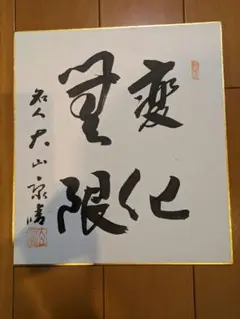 変化
無限
名人大山康晴